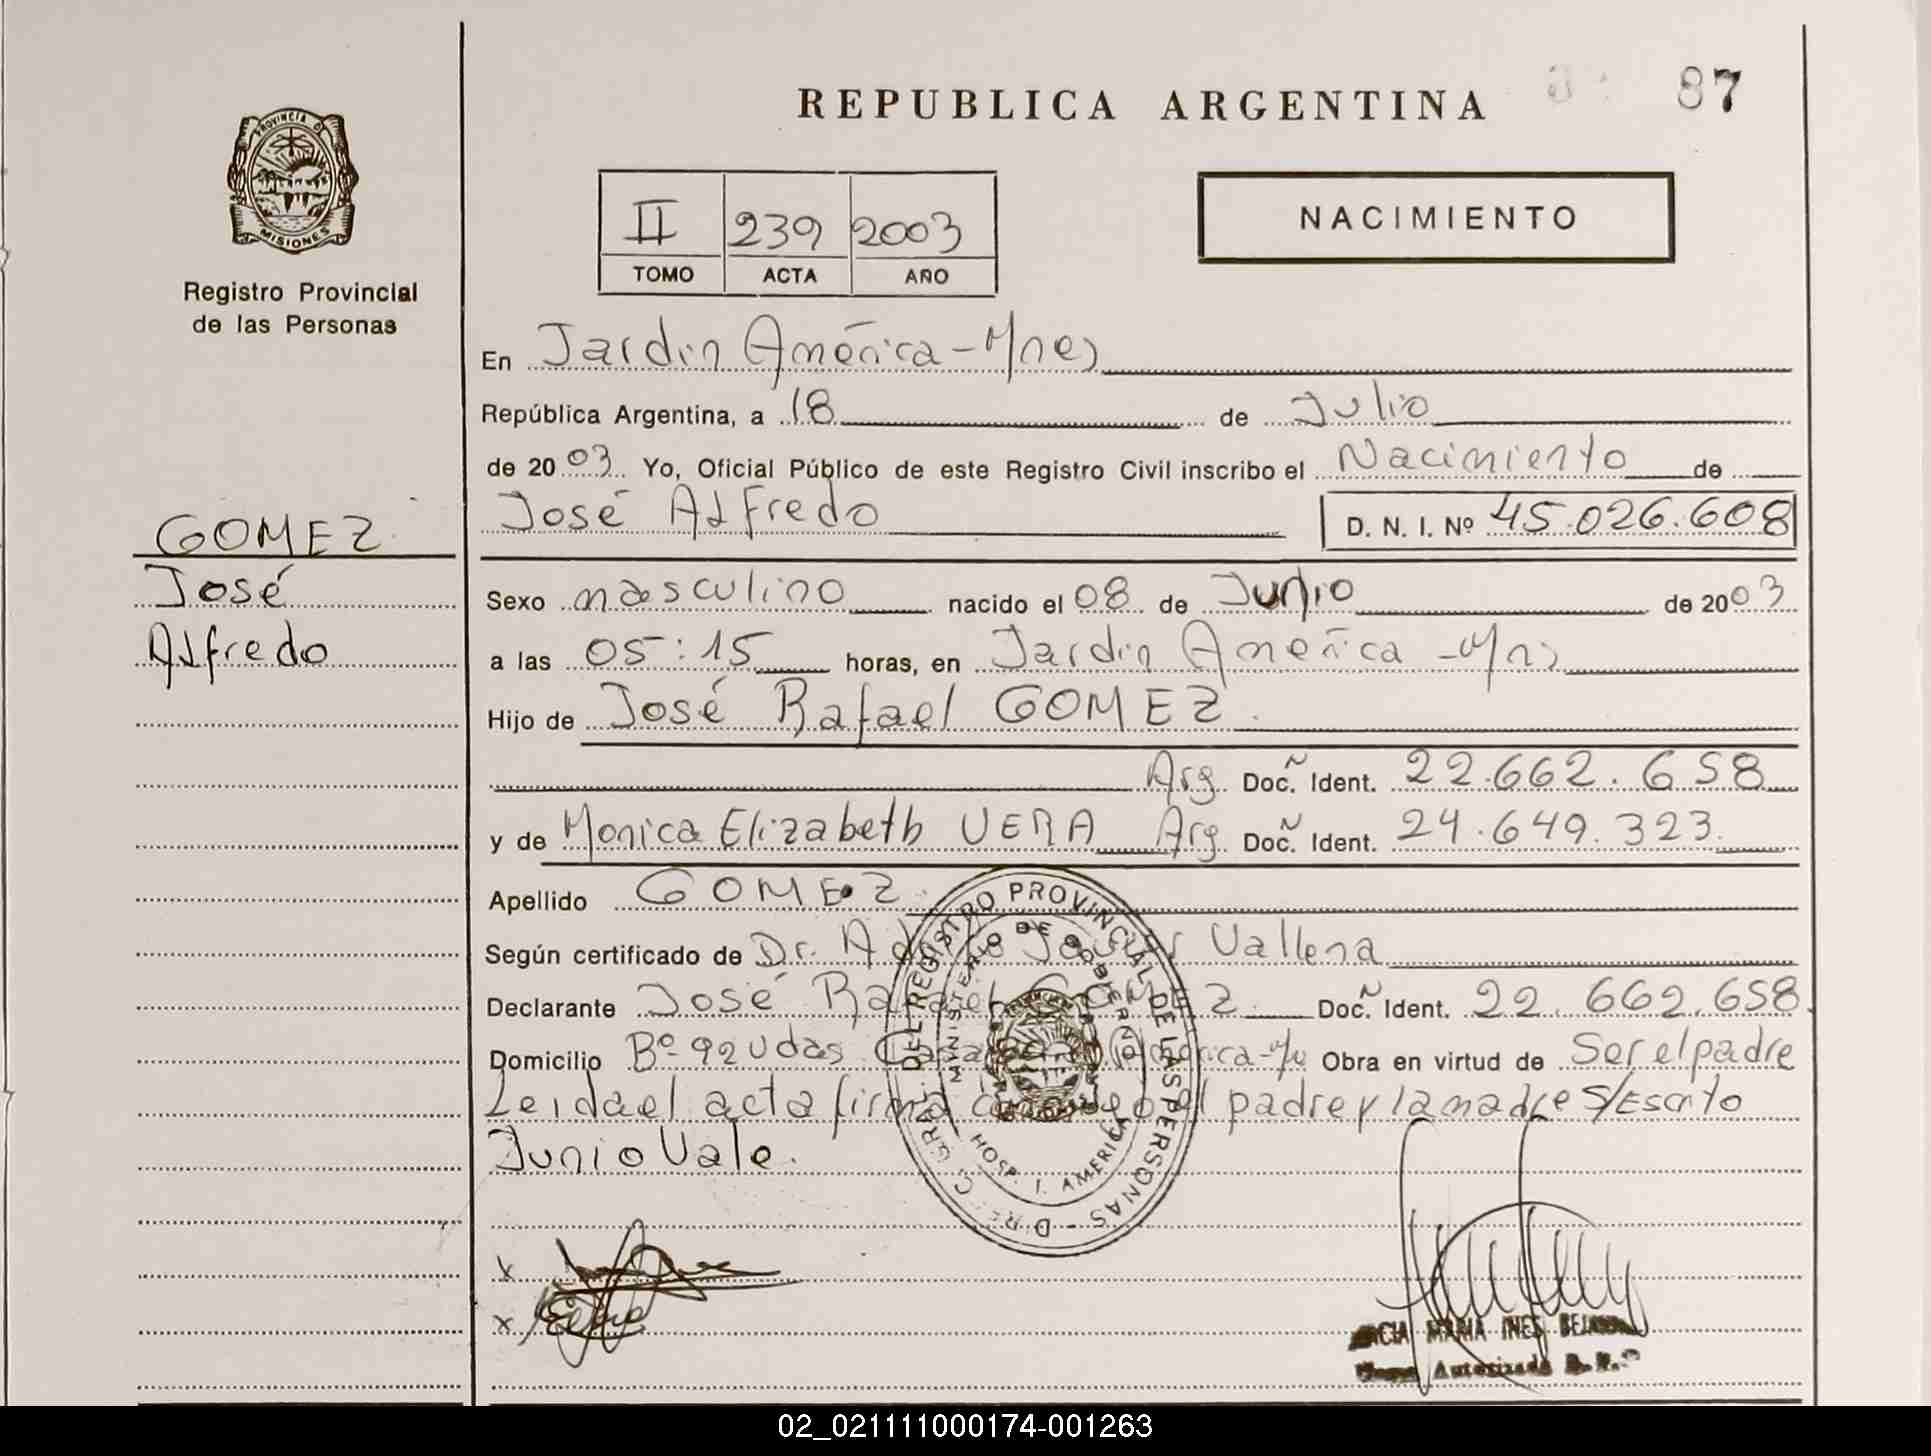 REPUBLICA ARGENTINA
87
PROVINCIA D
MISIONES
Registro Provincial
de las Personas
II 239 2003
TOMO ACTA AÑO
NACIMIENTO
En Jardin América-Mnes
República Argentina, a 18 de Julio
de 2003 Yo, Oficial Público de este Registro Civil inscribo el Nacimiento de
José Alfredo D. N. I. Nº 45.026.608
GOMEZ
José
Alfredo
Sexo masculino nacido el 08 de Junio de 2003
a las 05:15 horas, en Jardin América-Mns
Hijo de José Rafael GOMEZ.
Arg. Doc. Ident. 22.662.658
y de Monica Elizabeth VERA Arg. Doc. Ident. 24.649.323.
Apellido GOMEZ.
Según certificado de Dr. Vallena
Declarante José Rafael GOMEZ Doc. Ident. 22.662.658.
Domicilio Bº-92 Vdas América Obra en virtud de Ser el padre
Leida el acta firma el padre y la madre S/Escrito
Junio Vale.
DIREC. GRAL. DEL REGISTRO PROVINCIAL DE LAS PERSONAS
MINISTERIO DE GOBIERNO
HOSP. J. AMERICA
x
x
MARIA INES
Autorizado
02_021111000174-001263